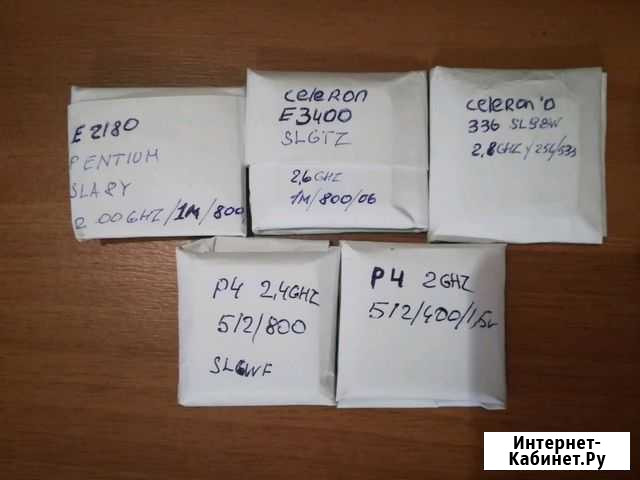 E2180
PENTIUM
SLA8Y
2.00GHZ/1M/800
CELERON
E3400
SLGTZ
2,6GHZ
1M/800/06
CELERON D
336 SL98W
2,8GHZ/256/533
P4 2,4GHZ
512/800
SL6WF
P4 2GHZ
512/400/1,5v
Интернет-
Кабинет.Ру